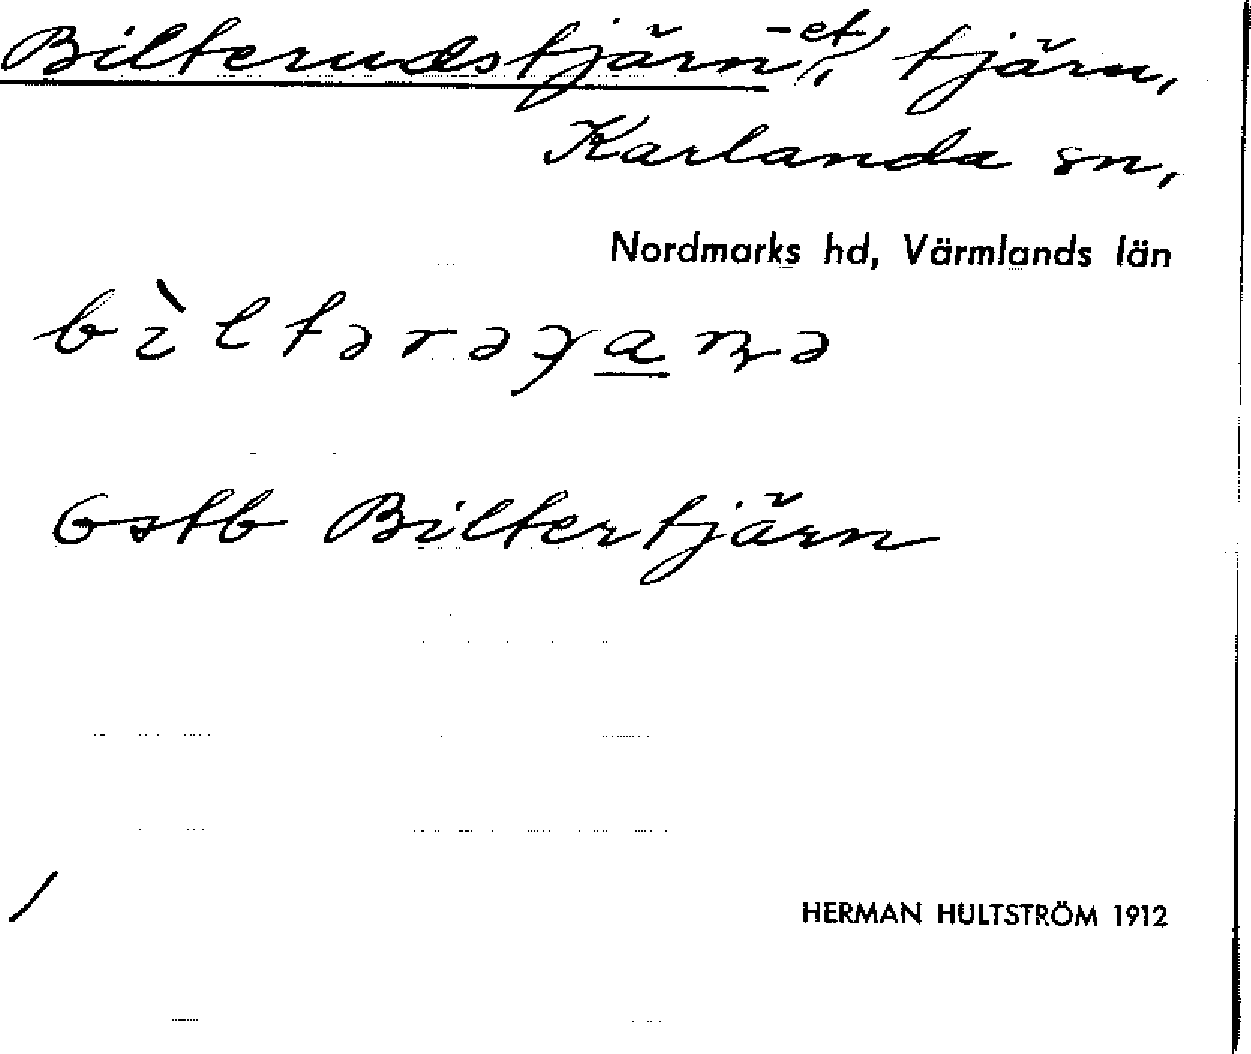 Bilterudstjärn, -et, tjärn,
Karlanda sn,
Nordmarks hd, Värmlands län
bìltərəɣa̲ṇə
Gstb Biltertjärn
/
HERMAN HULTSTRÖM 1912